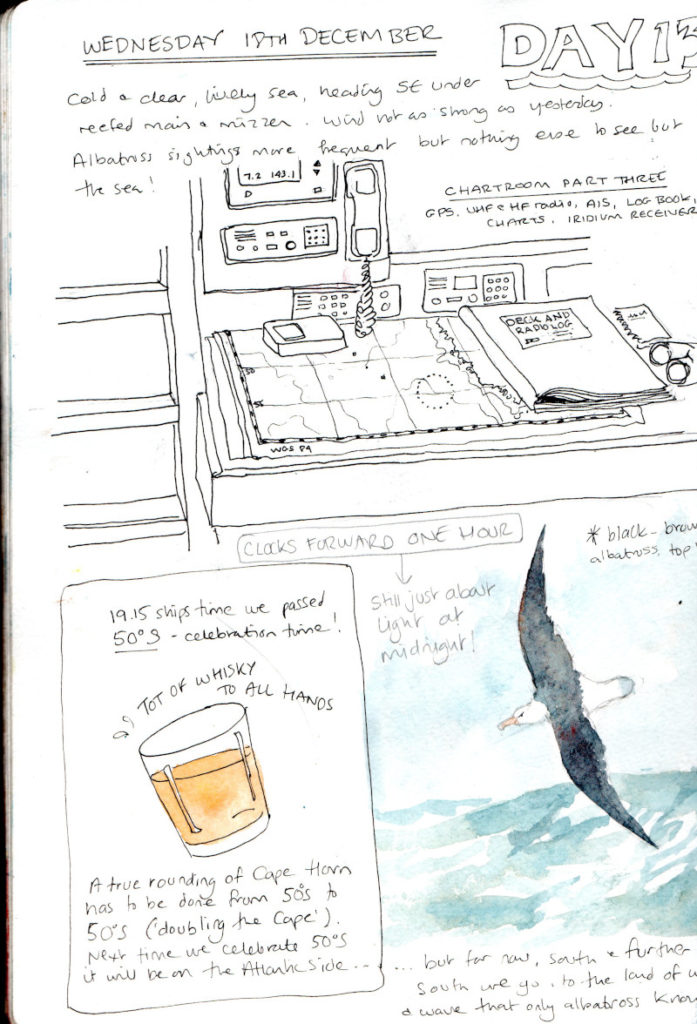 WEDNESDAY 18TH DECEMBER
DAY 13
Cold & clear, lively sea, heading SE under
reefed main & mizzen. Wind not as strong as yesterday.
Albatross sightings more frequent but nothing else to see but
the sea!
CHARTROOM PART THREE
GPS, VHF & HF radio, AIS, LOG BOOK,
CHARTS, IRIDIUM RECEIVER
7.2 143.1
DECK AND
RADIO LOG
WGS 84
CLOCKS FORWARD ONE HOUR
Still just about
light at
midnight!
* black-brow
albatross, top
19.15 ships time we passed
50°S - celebration time!
TOT OF WHISKY
TO ALL HANDS
A true rounding of Cape Horn
has to be done from 50°S to
50°S ('doubling the Cape').
Next time we celebrate 50°S
it will be on the Atlantic side...
... but for now, south & further
South we go, to the land of w
& wave that only albatross know